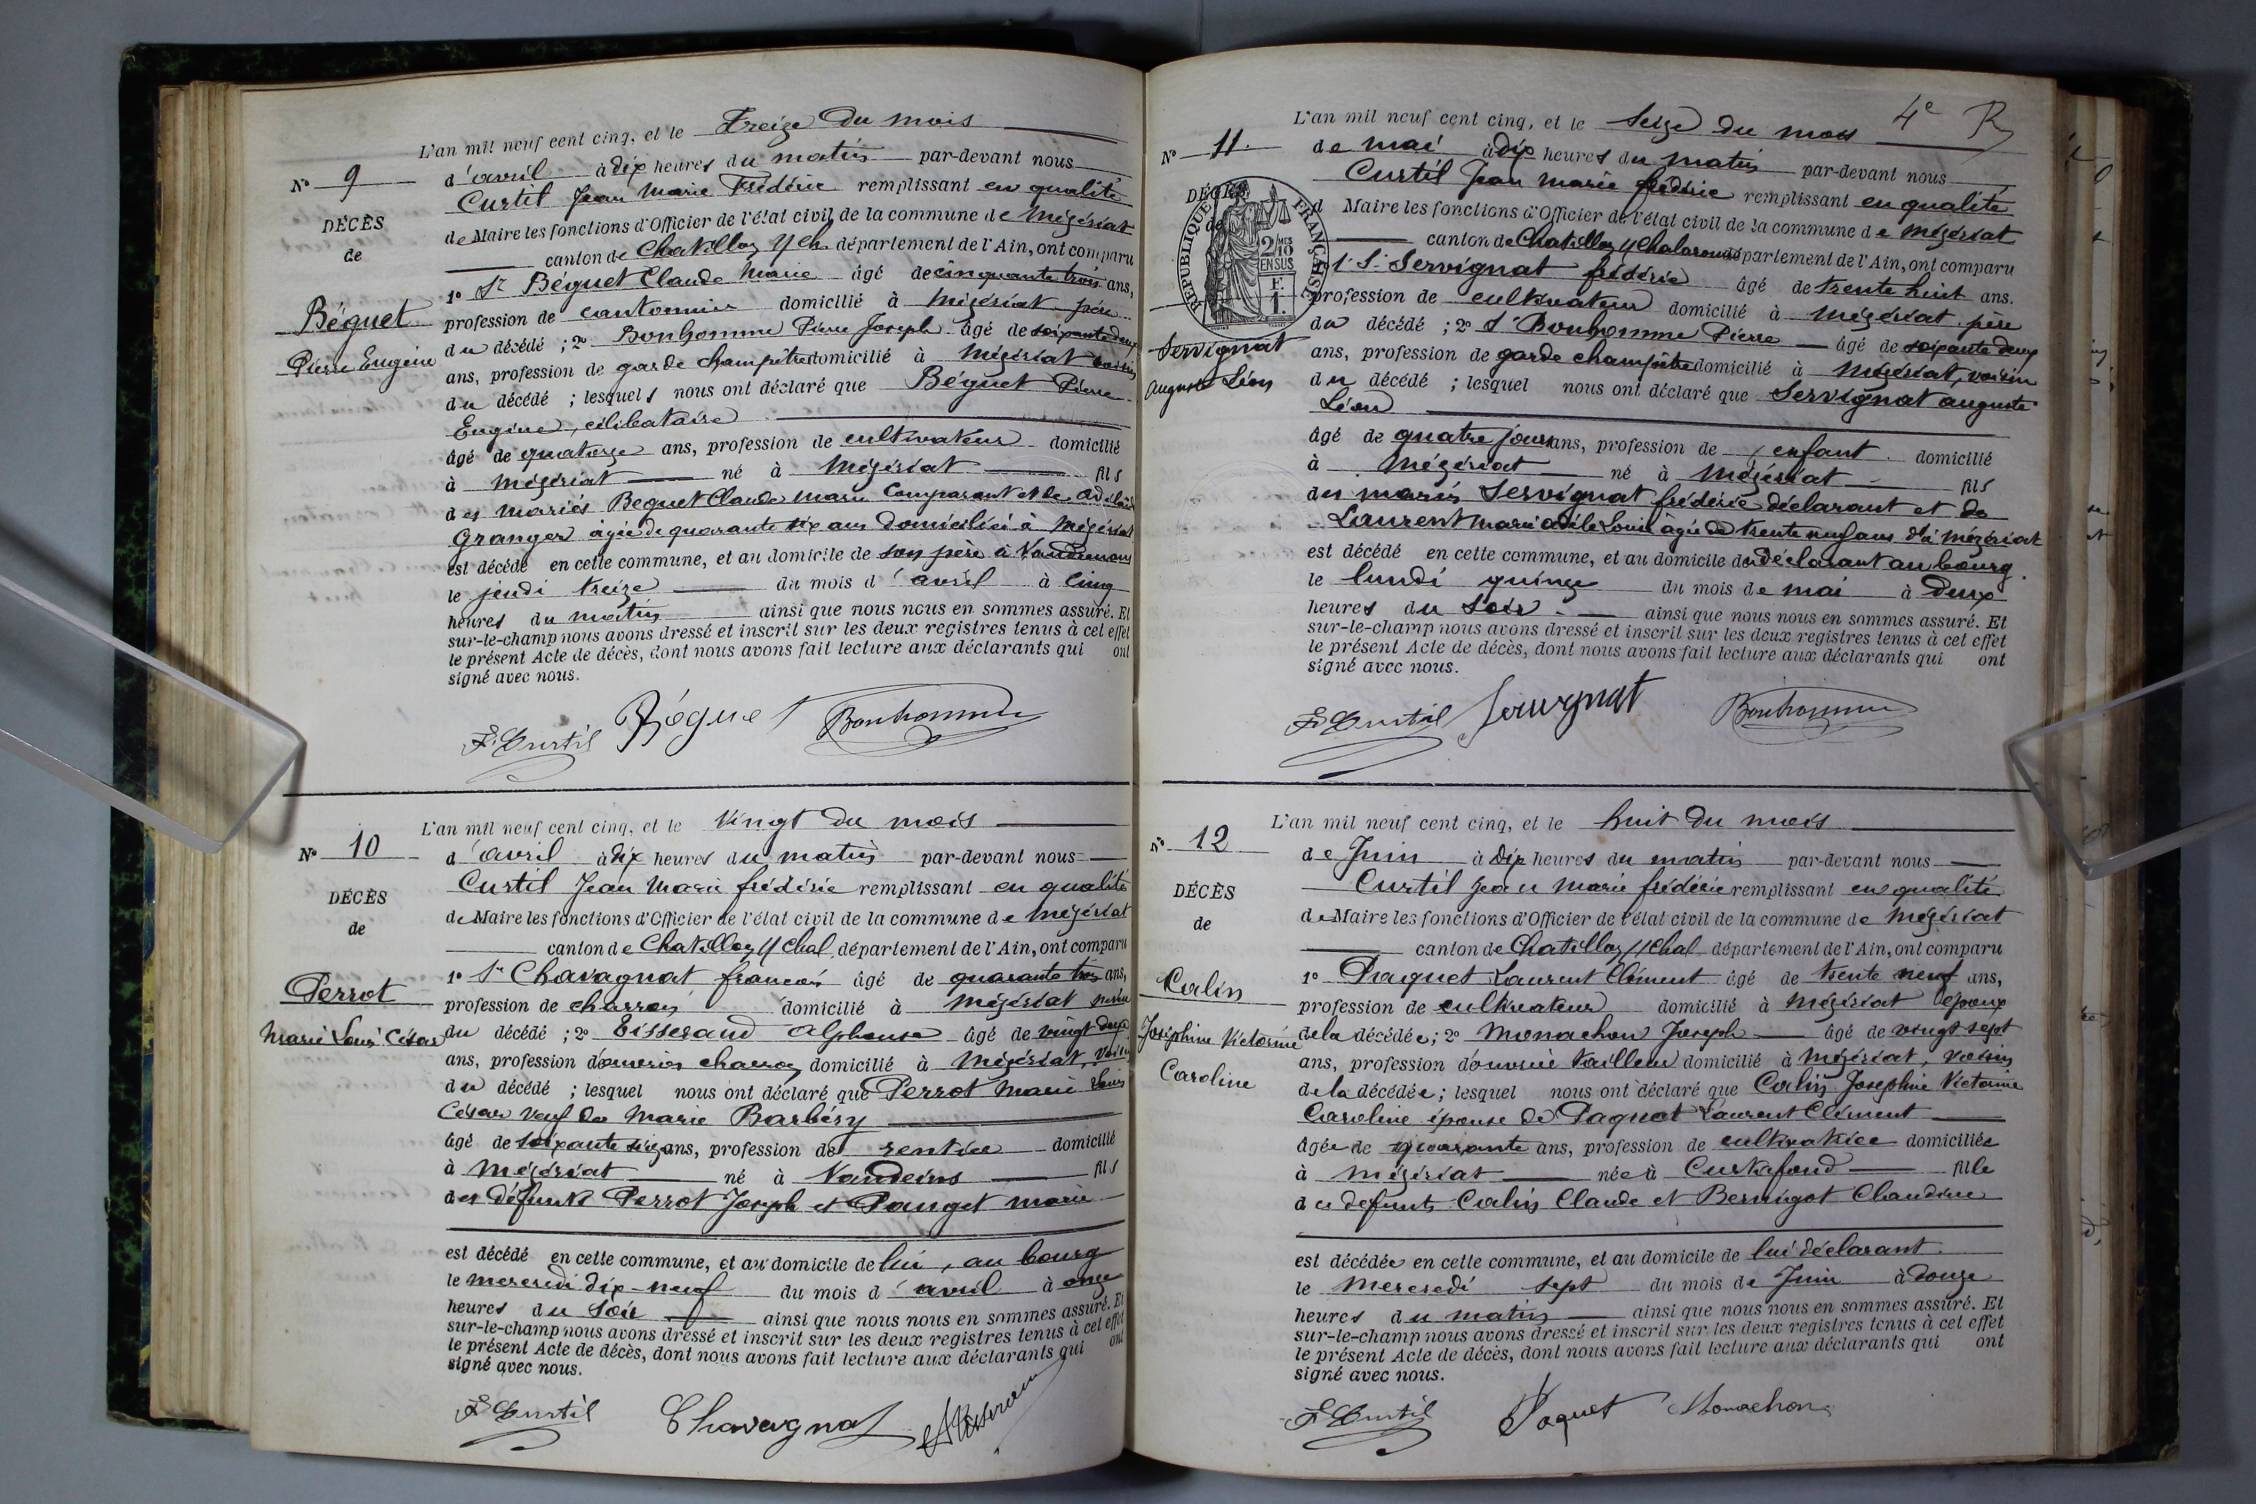 L'an mil neuf cent cinq, et le Treize du mois
N° 9
d'avril à dix heures du matin par-devant nous
Curtil Jean Marie Frédéric remplissant en qualité
DÉCÈS
de Maire les fonctions d'Officier de l'état civil de la commune de Mézériat
de
canton de Chatillon s/ Ch. département de l'Ain, ont comparu
1° Sr Béguet Claude Marie âgé de cinquante trois ans,
Béguet
profession de cantonnier domicilié à Mézériat père
du décédé ; 2° Bonhomme Pierre Joseph âgé de soixante deux
Pierre Eugène
ans, profession de garde champêtre domicilié à Mézériat voisin
du décédé ; lesquels nous ont déclaré que Béguet Pierre
Eugène, célibataire
âgé de quatorze ans, profession de cultivateur domicilié
à Mézériat né à Mézériat fils
des mariés Beguet Claude Marie Comparant et de Adélaïde
Granger âgée de quarante six ans domiciliée à Mézériat
est décédé en cette commune, et au domicile de son père à
le jeudi treize du mois d'avril à cinq
heures du matin ainsi que nous nous en sommes assuré. Et
sur-le-champ nous avons dressé et inscrit sur les deux registres tenus à cet effet
le présent Acte de décès, dont nous avons fait lecture aux déclarants qui ont
signé avec nous.
F. Curtil Béguet Bonhomme
L'an mil neuf cent cinq, et le vingt du mois
N° 10
d'avril à dix heures du matin par-devant nous
Curtil Jean Marie frédéric remplissant en qualité
DÉCÈS
de Maire les fonctions d'Officier de l'état civil de la commune de Mézériat
de
canton de Chatillon s/ Chal. département de l'Ain, ont comparu
1° Sr Chavagnat françois âgé de quarante trois ans,
Perrot
profession de charron domicilié à Mézériat
Marie Louis César
du décédé ; 2° Tisserand Alphonse âgé de vingt deux
ans, profession d'ouvrier charron domicilié à Mézériat, voisin
du décédé ; lesquel nous ont déclaré que Perrot Marie Louis
César veuf de Marie Barbéry
âgé de soixante seize ans, profession de rentier domicilié
à Mézériat né à Vandeins fils
des défunts Perrot Joseph et Pauget Marie
est décédé en cette commune, et au domicile de lui, au bourg
le mercredi dix-neuf du mois d'avril à onze
heures du soir ainsi que nous nous en sommes assuré. Et
sur-le-champ nous avons dressé et inscrit sur les deux registres tenus à cet effet
le présent Acte de décès, dont nous avons fait lecture aux déclarants qui ont
signé avec nous.
F. Curtil Chavagnat A Tisserand
4e R
L'an mil neuf cent cinq, et le Seize du mois
N° 11.
de mai à dix heures du matin par-devant nous
Curtil Jean Marie frédéric remplissant en qualité
DÉCÈS
de
RÉPUBLIQUE FRANÇAISE
2/10 MES EN SUS
F. 1.
d Maire les fonctions d'Officier de l'état civil de la commune de Mézériat
canton de Chatillon s/ Chalaronne département de l'Ain, ont comparu
1° Sr Servignat frédéric âgé de trente huit ans.
profession de cultivateur domicilié à Mézériat père
du décédé ; 2° Sr Bonhomme Pierre âgé de soixante deux
Servignat
ans, profession de garde champêtre domicilié à Mézériat, voisin
Auguste Léon
du décédé ; lesquel nous ont déclaré que Servignat Auguste
Léon
âgé de quatre jours ans, profession de enfant domicilié
à Mézériat né à Mézériat fils
des mariés Servignat frédéric déclarant et de
Laurent Marie Adèle Louise agée de trente neuf ans d'à Mézériat
est décédé en cette commune, et au domicile du déclarant au bourg.
le lundi quinze du mois de mai à deux
heures du soir ainsi que nous nous en sommes assuré. Et
sur-le-champ nous avons dressé et inscrit sur les deux registres tenus à cet effet
le présent Acte de décès, dont nous avons fait lecture aux déclarants qui ont
signé avec nous.
F. Curtil Servignat Bonhomme
L'an mil neuf cent cinq, et le huit du mois
N° 12
de Juin à dix heures du matin par-devant nous
Curtil Jean Marie frédéric remplissant en qualité
DÉCÈS
de Maire les fonctions d'Officier de l'état civil de la commune de Mézériat
de
canton de Chatillon s/ Chal. département de l'Ain, ont comparu
Calin
1° Paquet Laurent Clément âgé de trente neuf ans,
profession de cultivateur domicilié à Mézériat époux
Joséphine Victorine
de la décédée ; 2° Monachon Joseph âgé de vingt sept
ans, profession d'ouvrier tailleur domicilié à Mézériat, voisin
Caroline
de la décédée ; lesquel nous ont déclaré que Calin Joséphine Victorine
Caroline épouse de Paquet Laurent Clément
âgée de quarante ans, profession de cultivatrice domiciliée
à Mézériat née à Curtafond fille
des défunts Calin Claude et Bernigot Claudine
est décédée en cette commune, et au domicile de lui déclarant.
le mercredi sept du mois de Juin à douze
heures du matin ainsi que nous nous en sommes assuré. Et
sur-le-champ nous avons dressé et inscrit sur les deux registres tenus à cet effet
le présent Acte de décès, dont nous avons fait lecture aux déclarants qui ont
signé avec nous.
F. Curtil Paquet Monachon